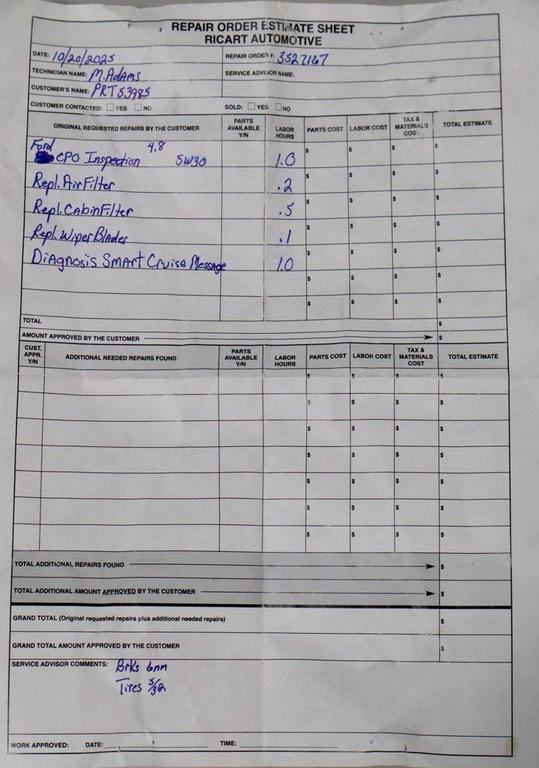 REPAIR ORDER ESTIMATE SHEET
RICART AUTOMOTIVE
DATE: 10/20/2025 REPAIR ORDER #: 3527167
TECHNICIAN NAME: M.Adams SERVICE ADVISOR NAME:
CUSTOMER'S NAME: PRT53985
CUSTOMER CONTACTED: YES NO SOLD: YES NO
ORIGINAL REQUESTED REPAIRS BY THE CUSTOMER PARTS AVAILABLE Y/N LABOR HOURS PARTS COST LABOR COST TAX & MATERIALS COS TOTAL ESTIMATE
Ford 4.8
CPO Inspection 5W30 1.0 $ $ $ $
Repl. Air Filter .2 $ $ $ $
Repl. Cabin Filter .5 $ $ $ $
Repl. Wiper Blades .1 $ $ $ $
Diagnosis Smart Cruise Message 1.0 $ $ $ $
$ $ $ $
$ $ $ $
TOTAL $
AMOUNT APPROVED BY THE CUSTOMER $
CUST. APPR. Y/N ADDITIONAL NEEDED REPAIRS FOUND PARTS AVAILABLE Y/N LABOR HOURS PARTS COST LABOR COST TAX & MATERIALS COST TOTAL ESTIMATE
$ $ $ $
$ $ $ $
$ $ $ $
$ $ $ $
$ $ $ $
$ $ $ $
$ $ $ $
TOTAL ADDITIONAL REPAIRS FOUND $
TOTAL ADDITIONAL AMOUNT APPROVED BY THE CUSTOMER $
GRAND TOTAL (Original requested repairs plus additional needed repairs) $
GRAND TOTAL AMOUNT APPROVED BY THE CUSTOMER $
SERVICE ADVISOR COMMENTS: Brks 6mm
Tires 5/32
WORK APPROVED: DATE: TIME: